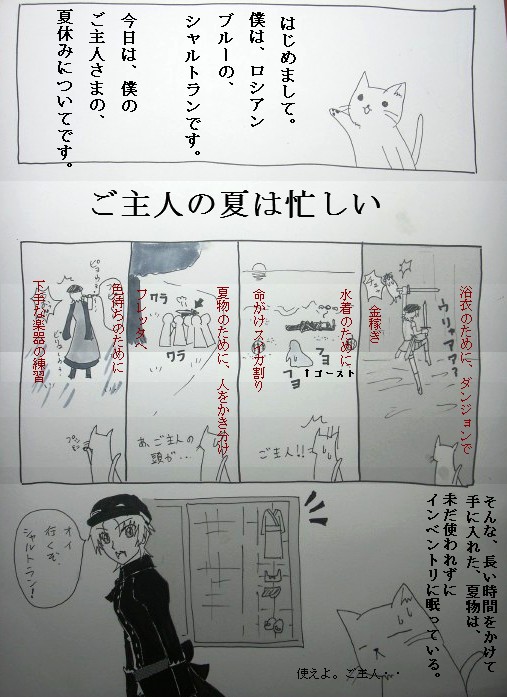 はじめまして。
僕は、ロシアン
ブルーの、
シャルトランです。
今日は、僕の
ご主人さまの、
夏休みについてです。
ご主人の夏は忙しい
浴衣のために、ダンジョンで
金稼ぎ
ウリャアアァ?
水着のために
命がけスイカ割り
↑ゴースト
フヨ
フヨ
ご主人!!
夏物のために、人をかき分け
ブレッタへ
ワラ
ワラ
あ、ご主人の
頭が…
色待ちのために
下手な楽器の練習
そんな、長い時間をかけて
手に入れた、夏物は、
未だ使われずに
インベントリに眠っている。
オイ
行くぞ、
シャルトラン!
使えよ。ご主人・・